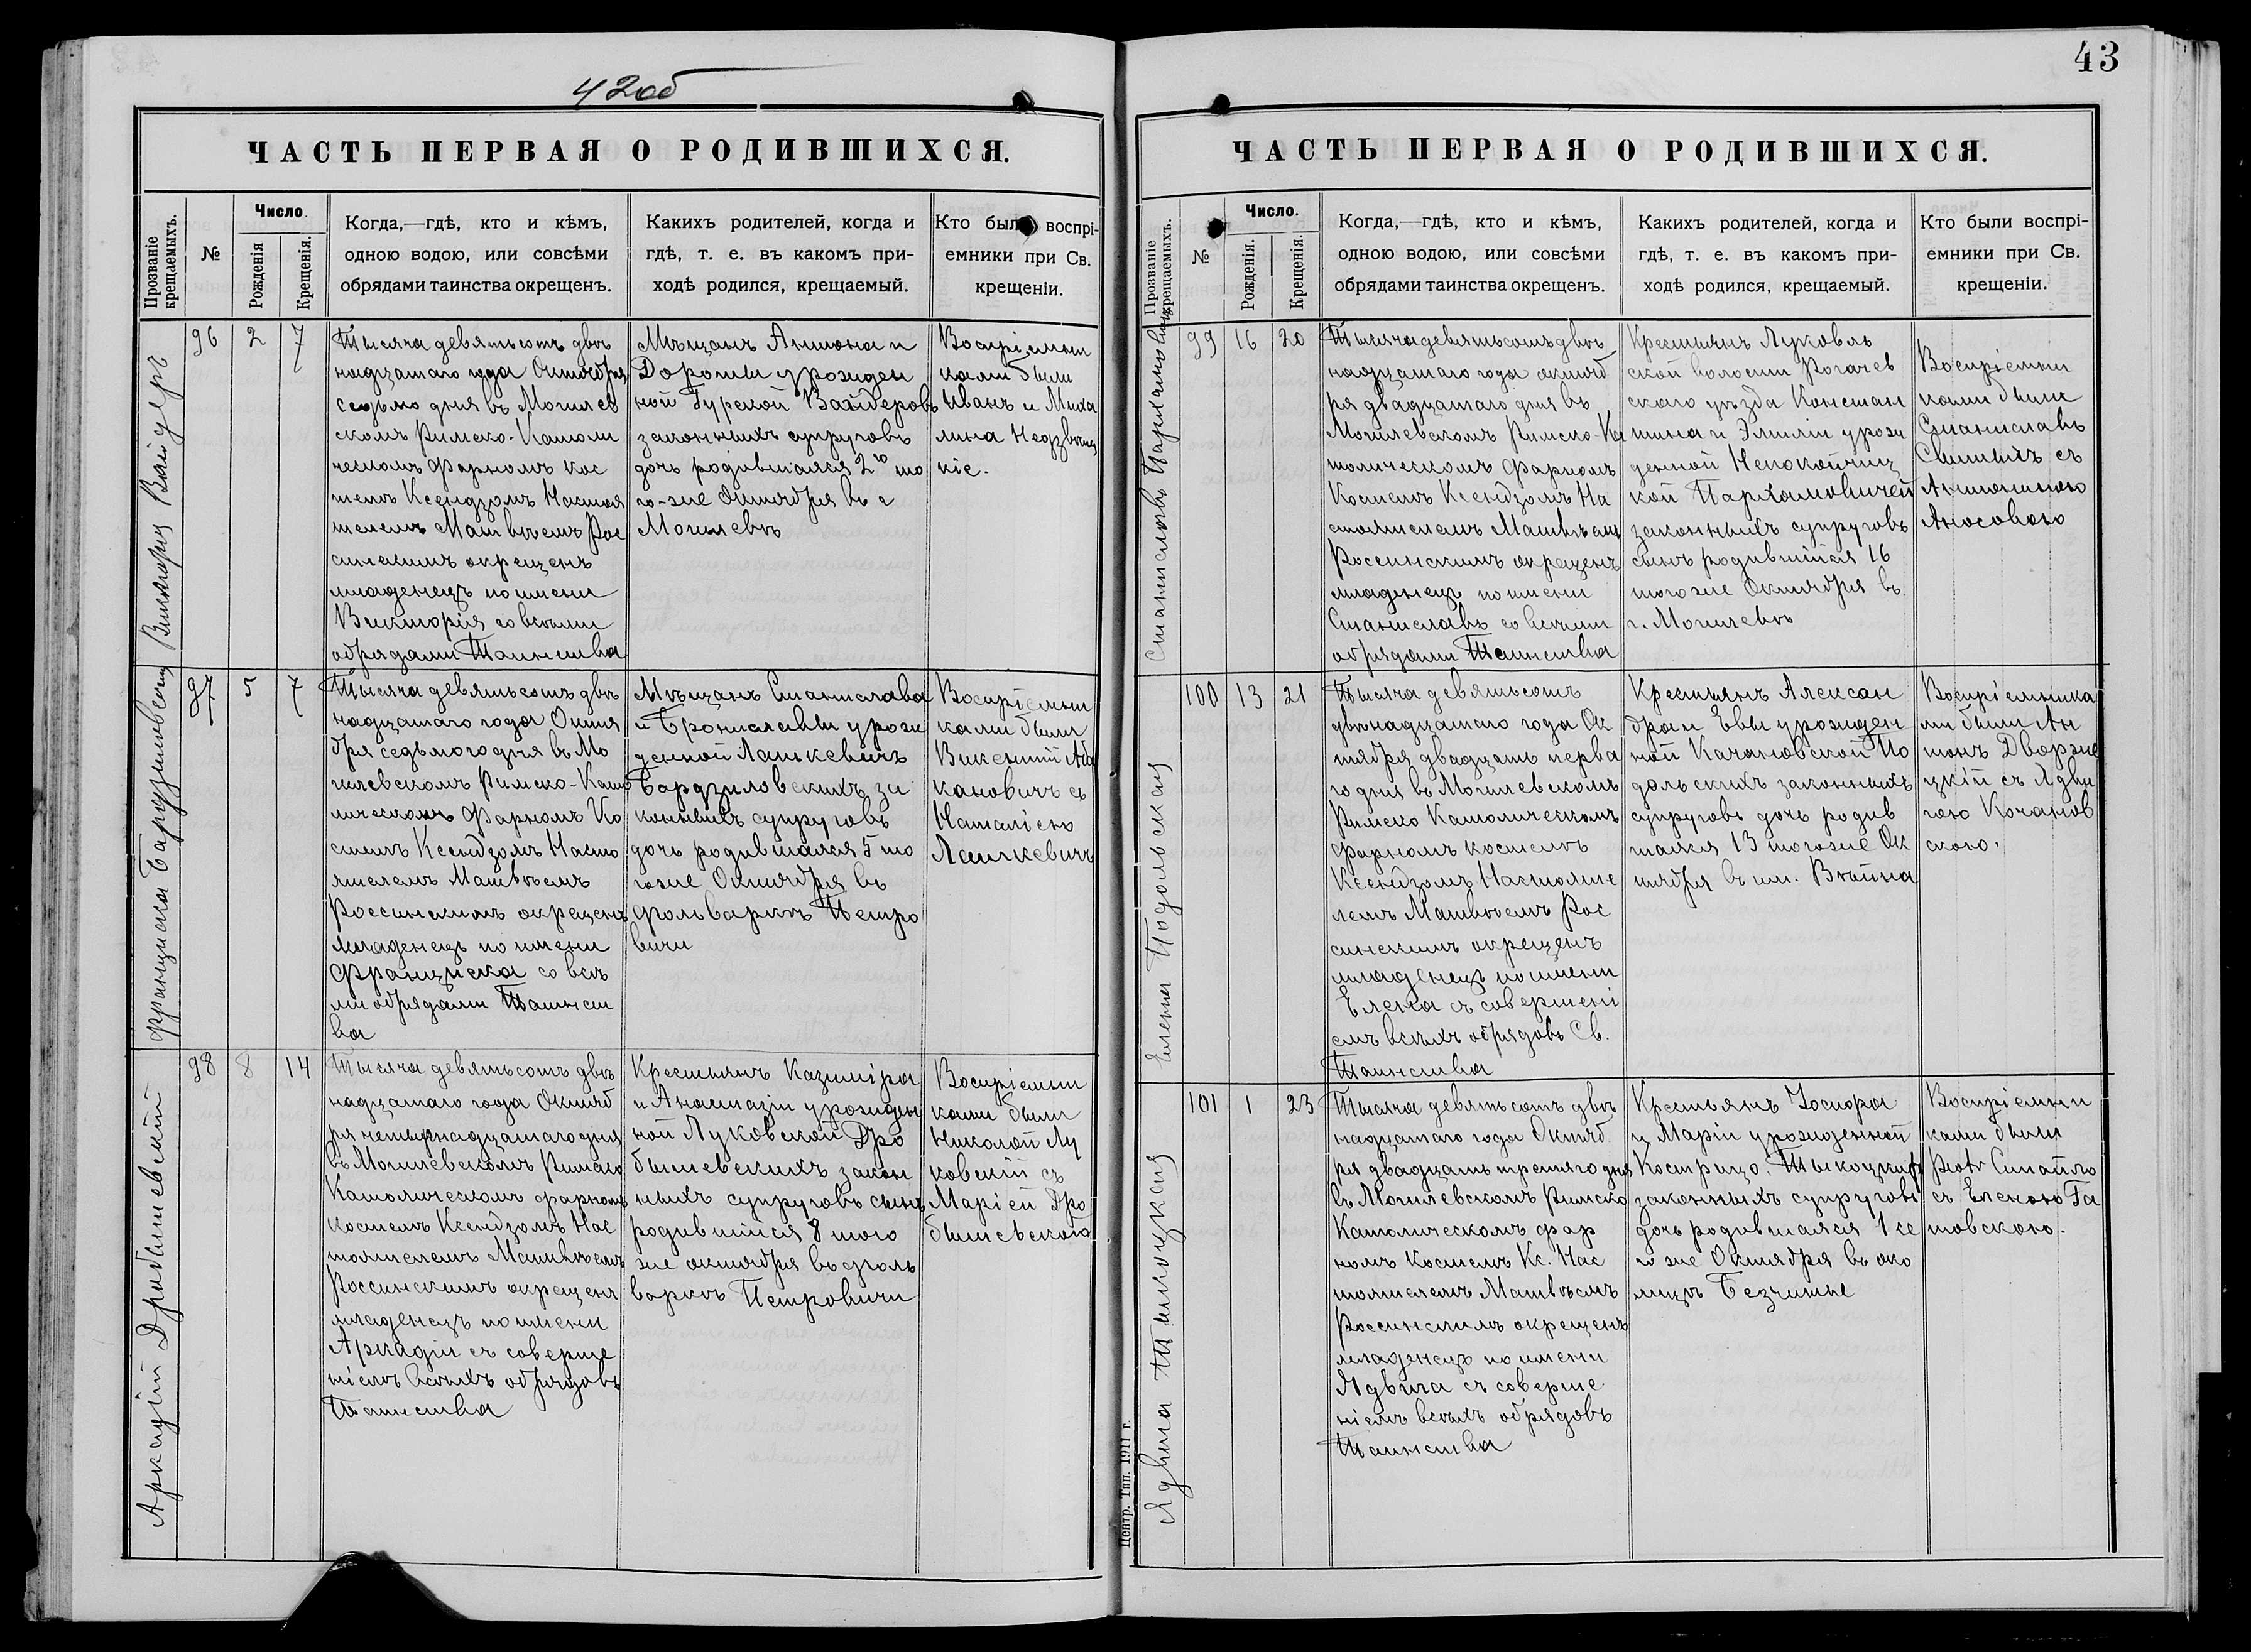 42об
ЧАСТЬ ПЕРВАЯ О РОДИВШИХСЯ.
Прозваніе крещаемыхъ.
№
Число.
Рожденія
Крещенія.
Когда,—гдѣ, кто и кѣмъ,
одною водою, или совсѣми
обрядами таинства окрещенъ.
Какихъ родителей, когда и
гдѣ, т. е. въ какомъ при-
ходѣ родился, крещаемый.
Кто были воспрі-
емники при Св.
крещеніи.
Викторія Вайдеръ
96
2
7
Тысяча девятьсотъ двѣ
надцатаго года Октября
седьмо дня въ Могилев
скомъ Римско-Католи
ческомъ Фарномъ Кос
телѣ Ксендзомъ Настоя
телемъ Матвѣемъ Рос
синскимъ окрещенъ
младенецъ по имени
Викторія со всѣми
обрядами Таинства
Мѣщанъ Антона и
Дороты урожден
ной Гурской Вайдеровъ
законныхъ супруговъ
дочь родившаяся 2го то
го-же Октября въ г
Могилевѣ
Воспріемни
ками были
Иванъ и Миха
лина
кіе.
Франциска Бардзиловская
97
5
7
Тысяча девятьсотъ двѣ
надцатаго года Октя
бря седьмого дня въ Мо
гилевскомъ Римско-Като
лическомъ Фарномъ Ко
стелѣ Ксендзомъ Насто
ятелемъ Матвѣемъ
Россинскимъ окрещенъ
младенецъ по имени
Франциска со всѣ
ми обрядами Таинст
ва
Мѣщанъ Станислава
и Брониславы урож
денной Лашкевичъ
Бардзиловскихъ за
конныхъ супруговъ
дочь родившаяся 5 то
гоже Октября въ
фольваркѣ Петро
вичи
Воспріемни
ками были
Викентій Аб
кановичъ съ
Наталіею
Лашкевичъ
Аркадій Дробышевскій
98
8
14
Тысяча девятьсотъ двѣ
надцатаго года Октяб
ря четырнадцатаго дня
въ Могилевскомъ Римско
Католическомъ фарномъ
костелѣ Ксендзомъ Нас
тоятелемъ Матвѣемъ
Россинскимъ окрещенъ
младенецъ по имени
Аркадій съ соверше
ніемъ всѣхъ обрядовъ
Таинства
Крестьянъ Казиміра
и Анастазіи урожден
ной Луковской Дро
бышевскихъ закон
ныхъ супруговъ сынъ
родившійся 8 того
же октября въ фоль
варкѣ Петровичи
Воспріемни
ками были
Николай Лу
ковскій съ
Маріей Дро
бышевскою
43
ЧАСТЬ ПЕРВАЯ О РОДИВШИХСЯ.
Прозваніе крещаемыхъ.
№
Число.
Рожденія.
Крещенія.
Когда,—гдѣ, кто и кѣмъ,
одною водою, или совсѣми
обрядами таинства окрещенъ.
Какихъ родителей, когда и
гдѣ, т. е. въ какомъ при-
ходѣ родился, крещаемый.
Кто были воспрі-
емники при Св.
крещеніи.
Станиславъ Пархамовичъ
99
16
20
Тысяча девятьсотъ двѣ
надцатаго года октяб
ря двадцатаго дня въ
Могилевскомъ Римско-Ка
толическомъ Фарномъ
Костелѣ Ксендзомъ На
стоятелемъ Матвѣемъ
Россинскимъ окрещенъ
младенецъ по имени
Станиславъ со всѣми
обрядами Таинства
Крестьянъ Луковль
ской волости Рогачев
скаго уѣзда Констан
тина и Эмиліи урож
денной Непокойчиц
кой Пархамовичей
законныхъ супруговъ
сынъ родившійся 16
того же Октября въ
г. Могилевѣ
Воспріемни
ками были
Станиславъ
съ
Антониною
Аносовою
Елена Подольская
100
13
21
Тысяча девятьсотъ
двѣнадцатаго года Ок
тября двадцать перва
го дня въ Могилевскомъ
Римско Католическомъ
Фарномъ костелѣ
Ксендзомъ Настояте
лемъ Матвѣемъ Рос
синскимъ окрещенъ
младенецъ по имени
Елена съ совершені
емъ всѣхъ обрядовъ Св.
Таинства
Крестьянъ Алексан
дра и Евы урожден
ной Качановской По
дольскихъ законныхъ
супруговъ дочь родив
шаяся 13 тогоже Ок
тября въ им. Вѣйна
Воспріемника
ми были Ан
тонъ Дворже
цкій съ Ядви
гою Кочанов
скою.
Ядвига Тылоцкая
101
1
23
Тысяча девятьсотъ двѣ
надцатаго года Октяб
ря двадцать третяго дня
въ Могилевскомъ Римско
Католическомъ фар
номъ Костелѣ Кс. Нас
тоятелемъ Матвѣемъ
Россинскимъ окрещенъ
младенецъ по имени
Ядвига съ соверше
ніемъ всѣхъ обрядовъ
Таинства
Крестьянъ Іосифа
и Маріи урожденной
Кострицо.
законныхъ супруговъ
дочь родившаяся 1 се
го же Октября въ око
лицѣ Безчинье
Воспріемни
ками были
Piotr Смайло
съ Еленою Га
товскою.
Центр. Тип. 1911 г.